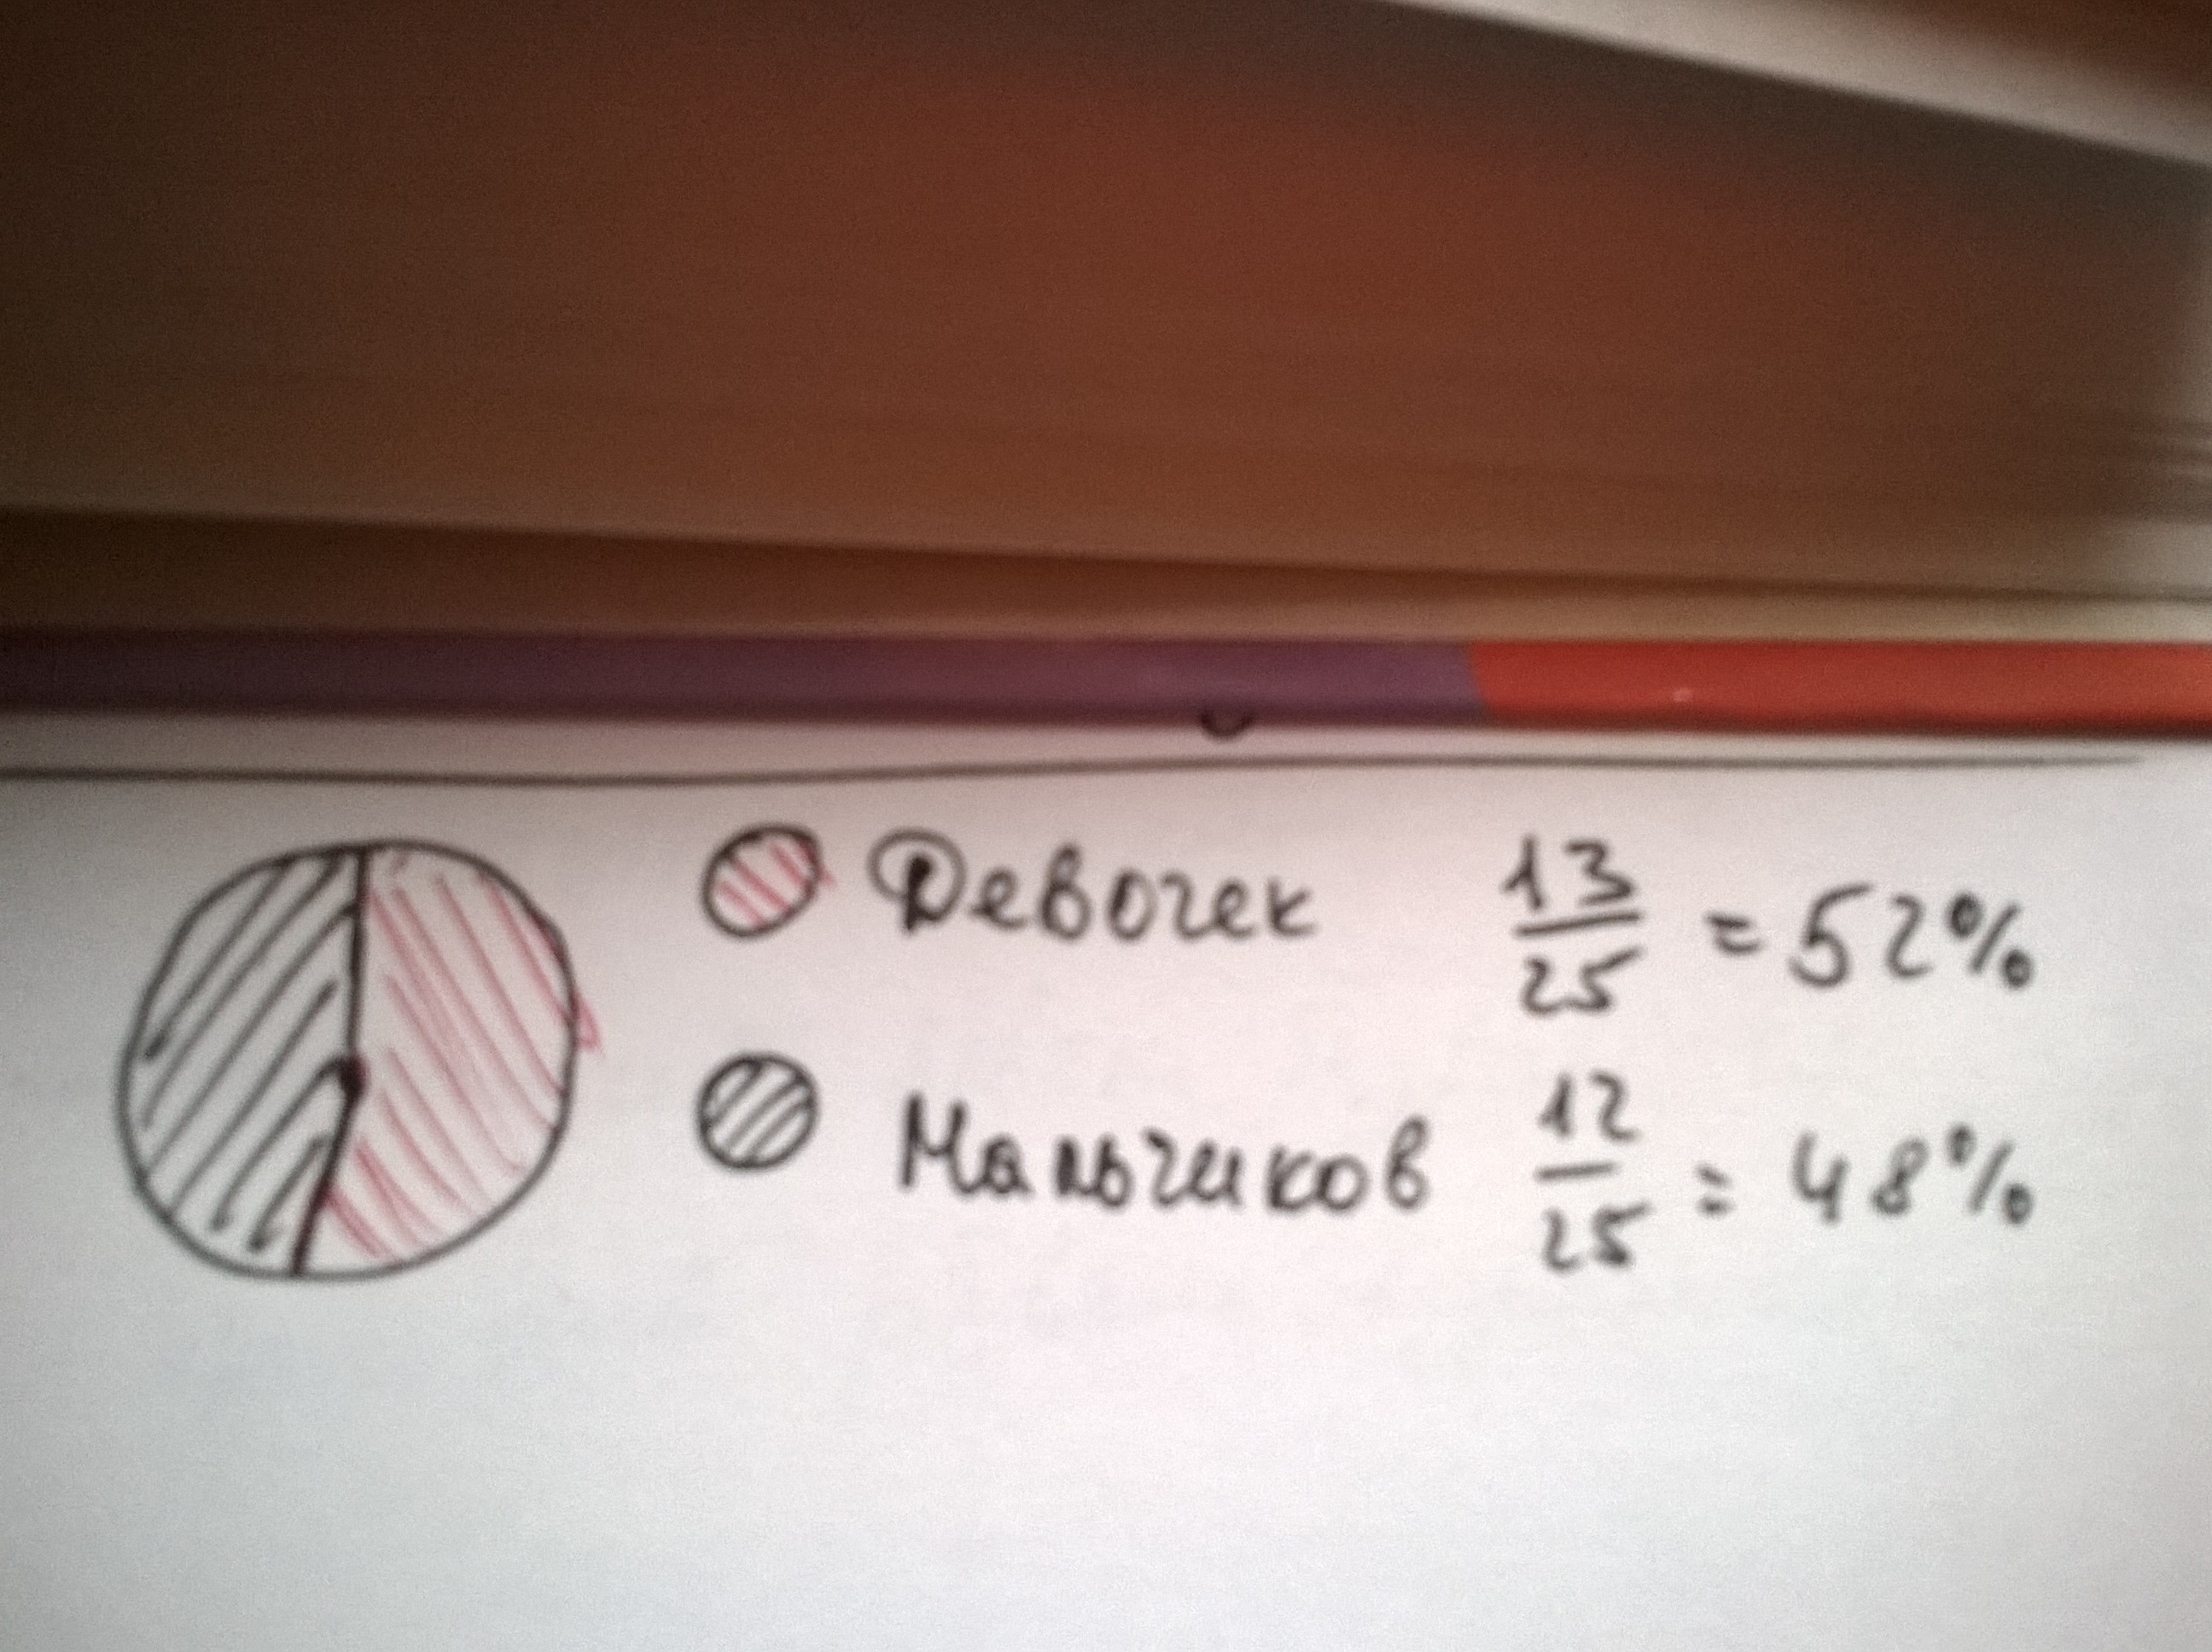 Девочек 13/25 = 52%
Мальчиков 12/25 = 48%